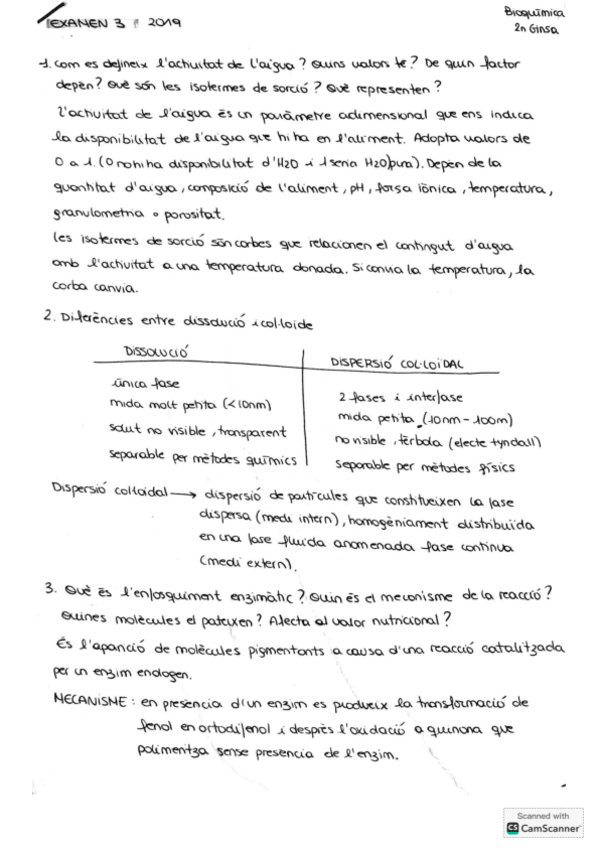 EXAMEN 3 2019
Bioquímica
2n Ginsa
1. Com es defineix l'activitat de l'aigua? Quins valors té? De quin factor
depèn? Què són les isotermes de sorció? Què representen?
L'activitat de l'aigua és un paràmetre adimensional que ens indica
la disponibilitat de l'aigua que hi ha en l'aliment. Adopta valors de
0 a 1. (0 no hi ha disponibilitat d'H2O i 1 seria H2O pura). Depèn de la
quantitat d'aigua, composició de l'aliment, pH, força iònica, temperatura,
granulometria o porositat.
Les isotermes de sorció són corbes que relacionen el contingut d'aigua
amb l'activitat a una temperatura donada. Si canvia la temperatura, la
corba canvia.
2. Diferències entre dissolució i col·loide
DISSOLUCIÓ
DISPERSIÓ COL·LOIDAL
única fase
2 fases i interfase
mida molt petita (<10nm)
mida petita (10nm-100m)
solut no visible, transparent
no visible, tèrbola (efecte tyndall)
separable per mètodes químics
separable per mètodes físics
Dispersió colloidal → dispersió de partícules que constitueixen la fase
dispersa (medi intern), homogèniament distribuïda
en una fase fluida anomenada fase contínua
(medi extern).
3. Què és l'enfosquiment enzimàtic? Quin és el mecanisme de la reacció?
Quines molècules el pateixen? Afecta al valor nutricional?
És l'aparició de molècules pigmentants a causa d'una reacció catalitzada
per un enzim endogen.
MECANISME: en presencia d'un enzim es produeix la transformació de
fenol en ortodifenol i desprès l'oxidació a quinona que
polimentza sense presencia de l'enzim.
Scanned with
CS CamScanner